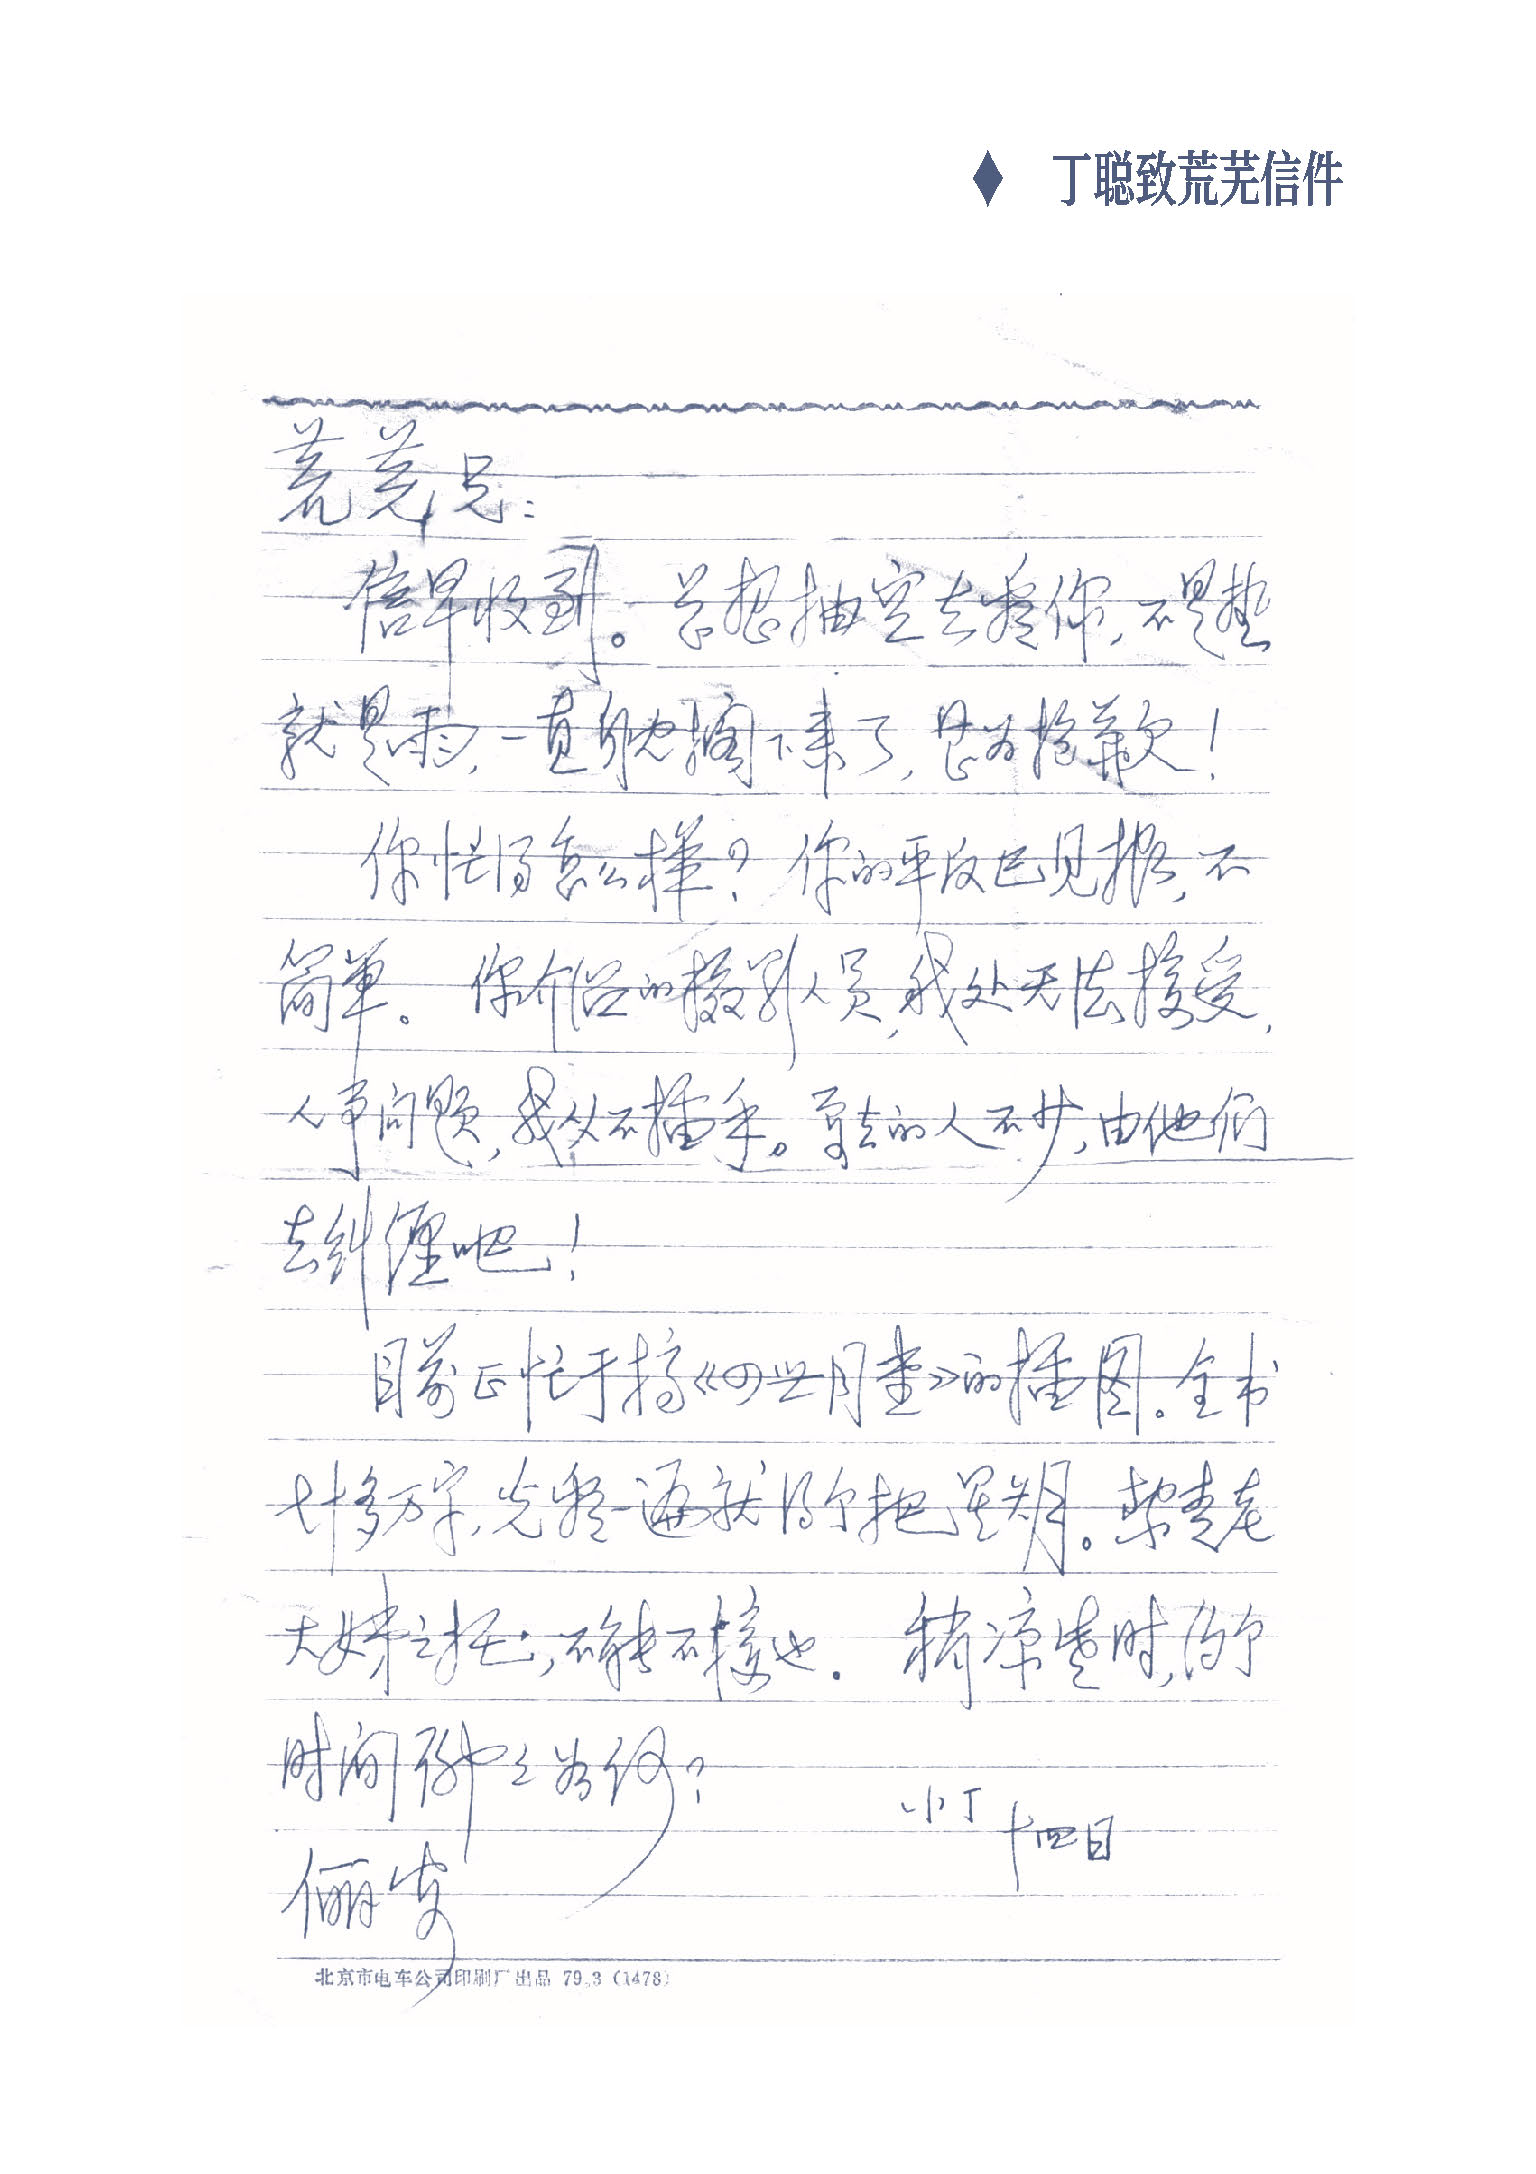 丁聪致荒芜信件
荒芜兄：
信早收到。总想抽空去看你，不是热
就是雨，一直耽搁下来了，甚为抱歉！
你忙得怎么样？你的平反已见报，不
简单。你介绍的摄影人员，我处无法接受，
人事问题，我从不插手。要去的人不少，由他们
去纠缠吧！
目前正忙于搞《四世同堂》的插图。全书
七十多万字，光看一遍就得个把星期。絜青老
大姊之托，不能不接也．稍凉爽时，约个
时间聊聊如何？
小丁
十四日
俪安
北京市电车公司印刷厂出品 79.3（1478）